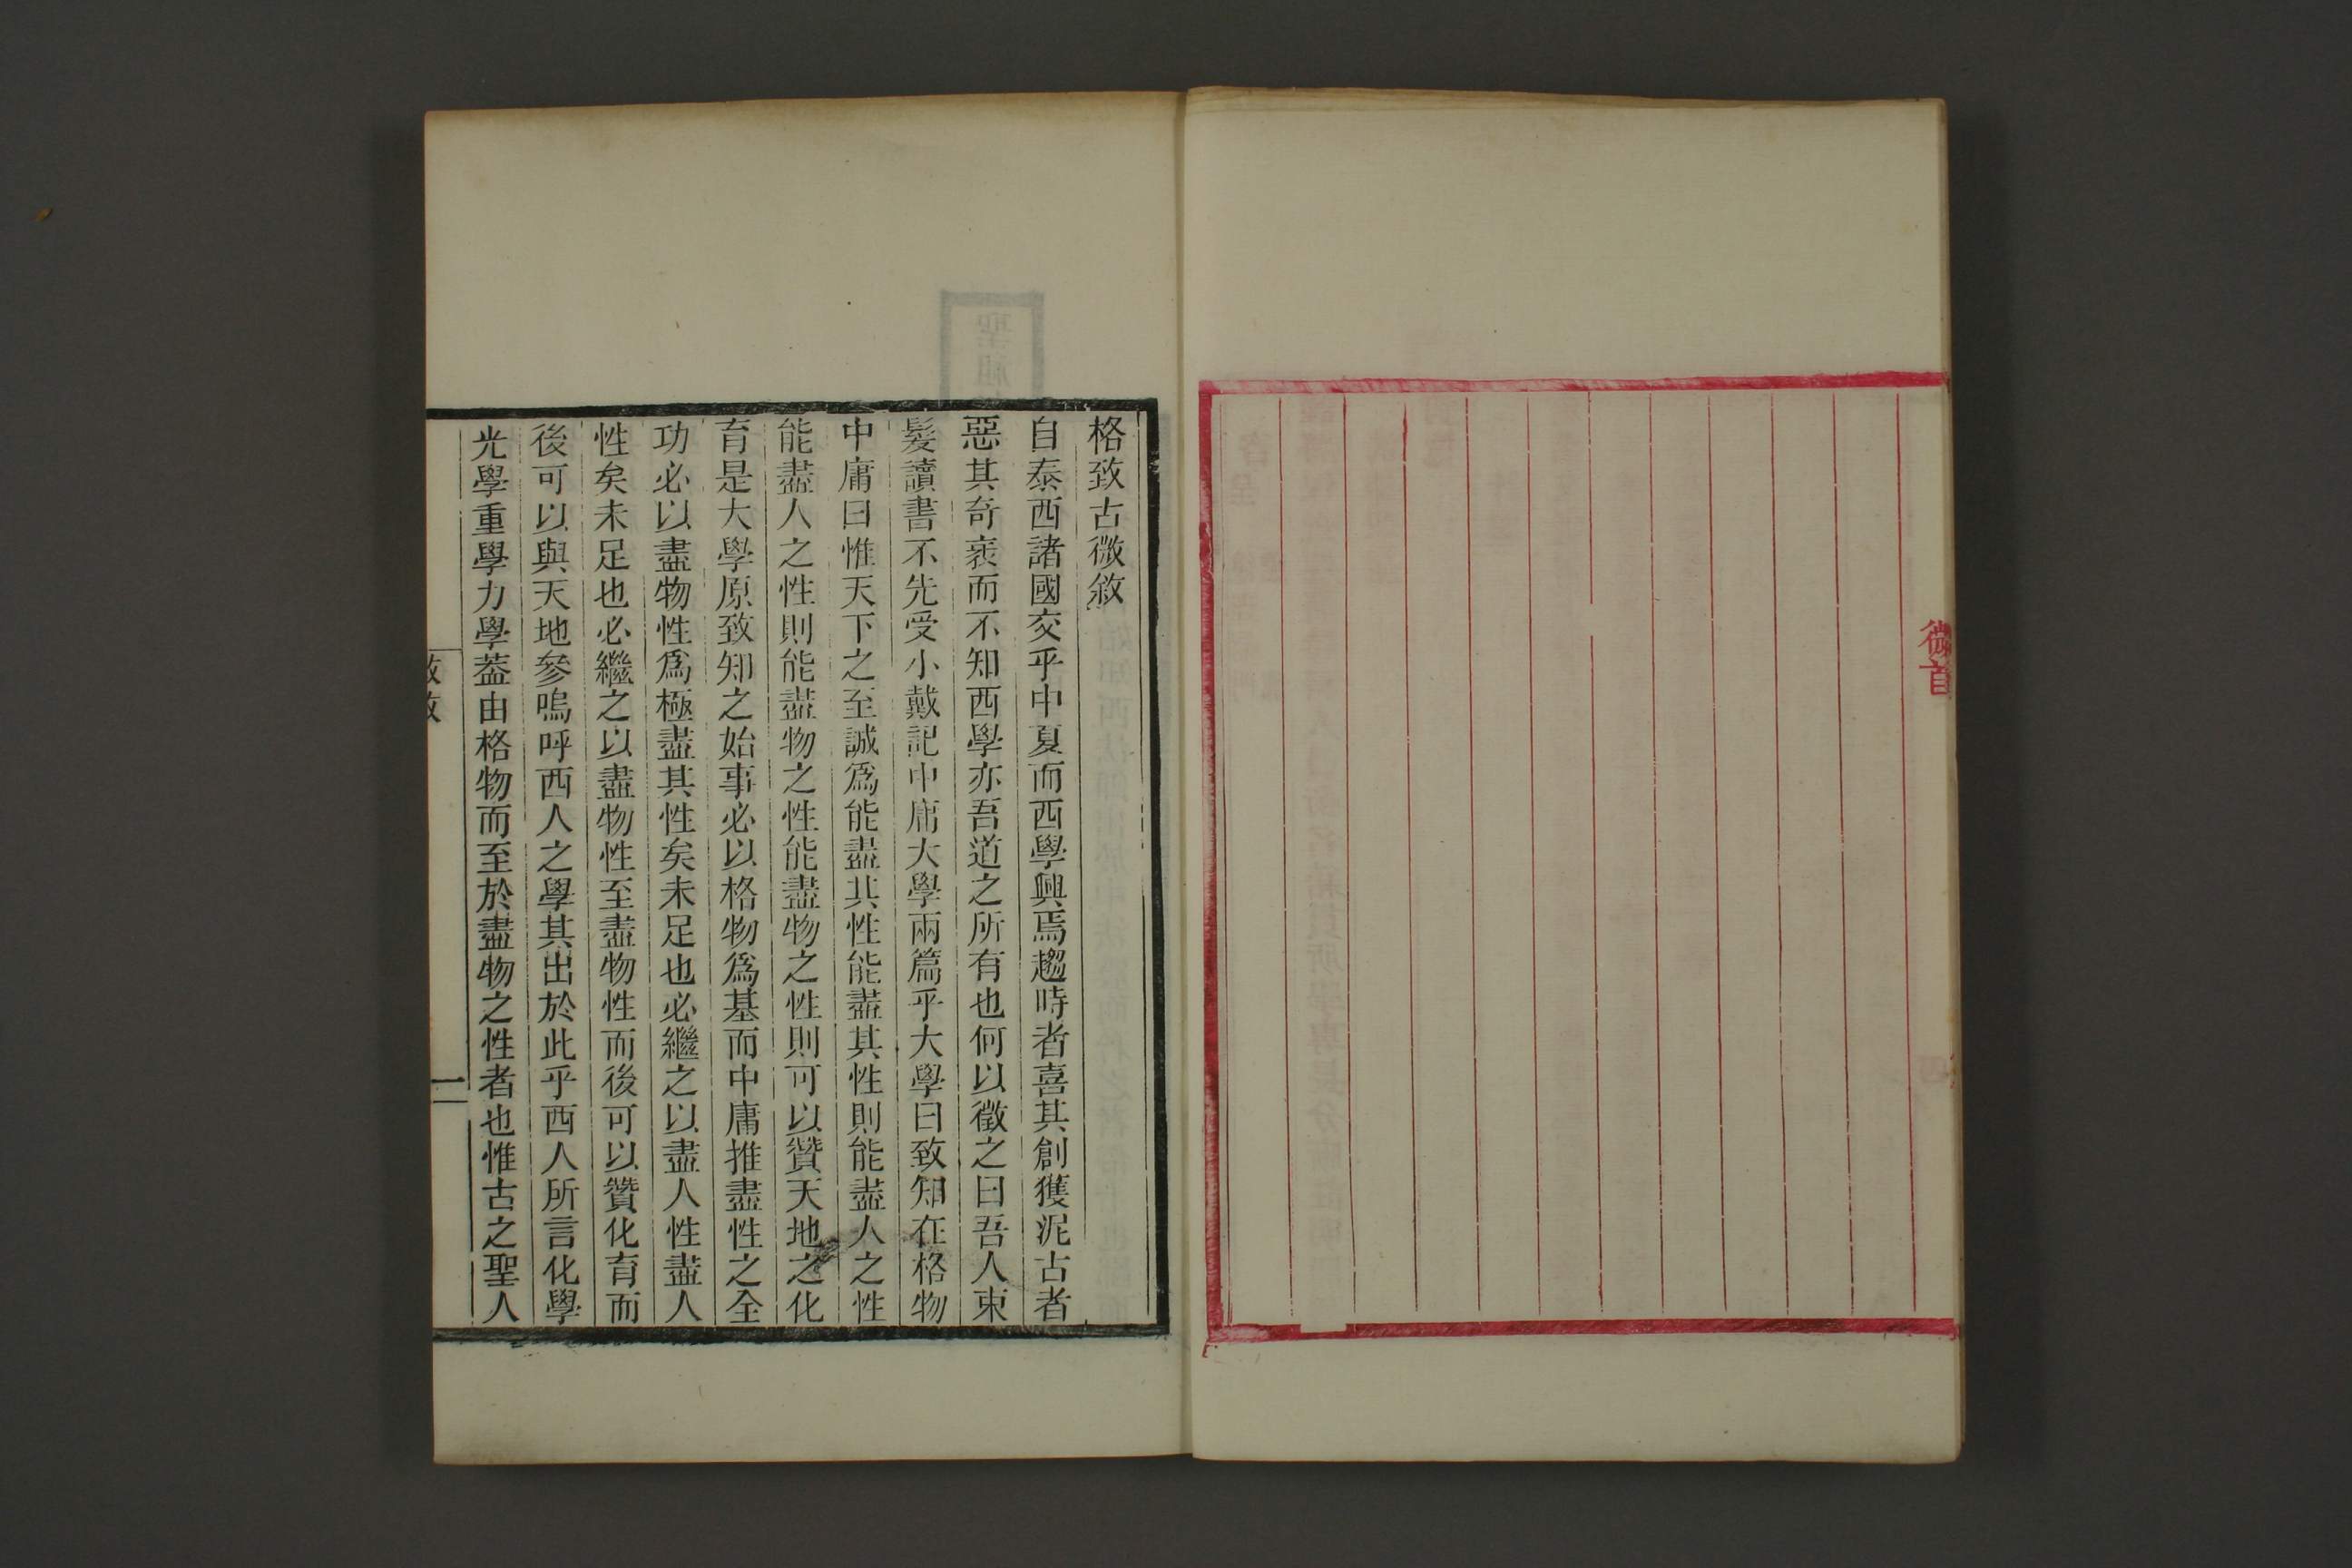 微首
格致古微敘
自泰西諸國交乎中夏而西學興焉趨時者喜其創獲泥古者
惡其奇衺而不知西學亦吾道之所有也何以徵之曰吾人束
髮讀書不先受小戴記中庸大學兩篇乎大學曰致知在格物
中庸曰惟天下之至誠爲能盡其性能盡其性則能盡人之性
能盡人之性則能盡物之性能盡物之性則可以贊天地之化
育是大學原致知之始事必以格物爲基而中庸推盡性之全
功必以盡物性爲極盡其性矣未足也必繼之以盡人性盡人
性矣未足也必繼之以盡物性至盡物性而後可以贊化育而
後可以與天地參嗚呼西人之學其出於此乎西人所言化學
光學重學力學蓋由格物而至於盡物之性者也惟古之聖人